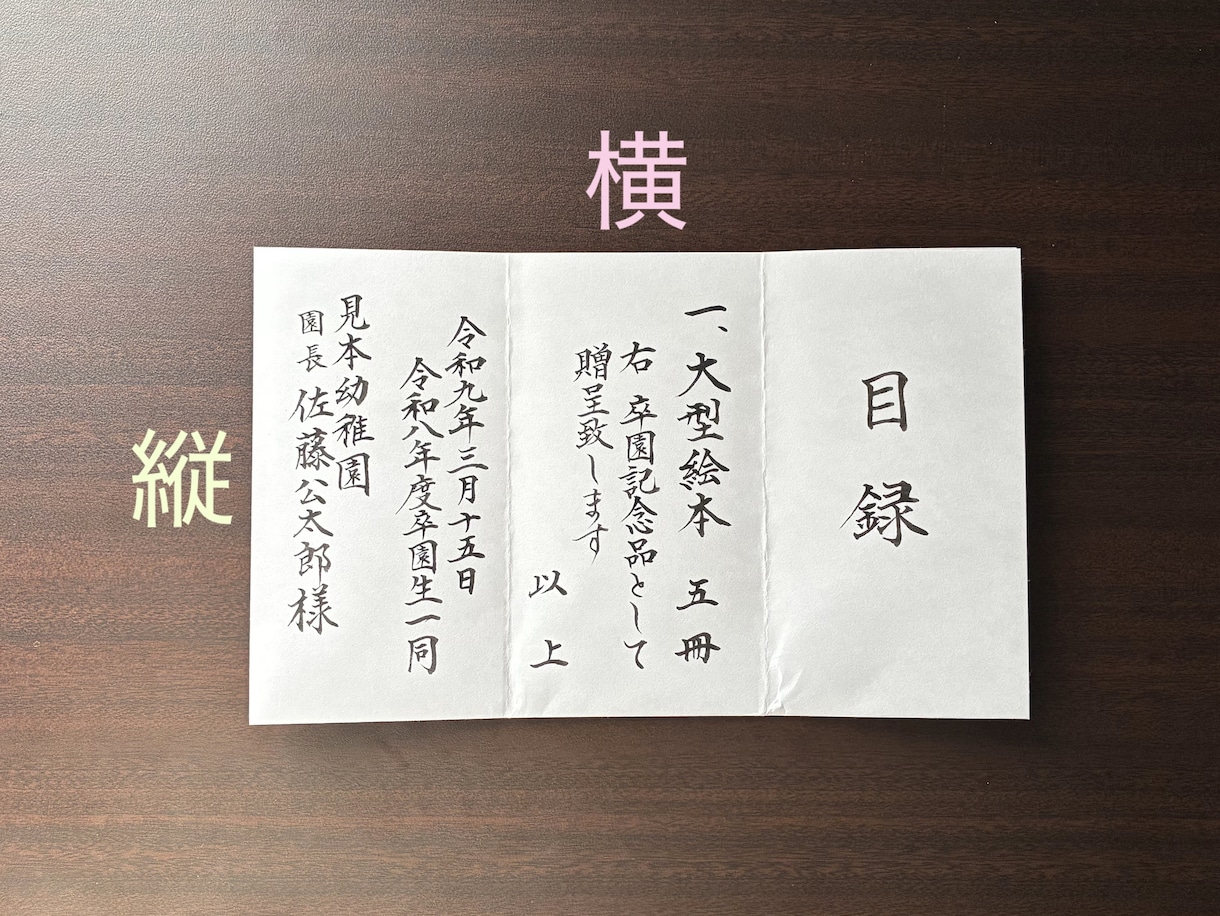 横
縦
目録
一、大型絵本 五冊
右 卒園記念品として
贈呈致します
以上
令和九年三月十五日
令和八年度卒園生一同
見本幼稚園
園長 佐藤公太郎様